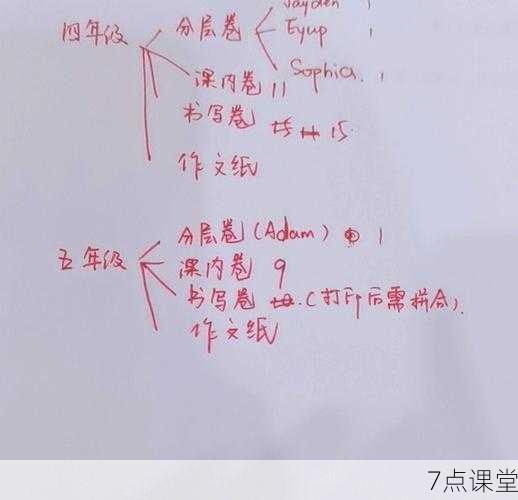 Jayden 1
四年级 分层卷 Eyup 1
Sophia. 1
课内卷 11
书写卷 15.
作文纸
分层卷(Adam) 1
五年级
课内卷 9
书写卷 .(打印后需拼合).
作文纸
7点课堂